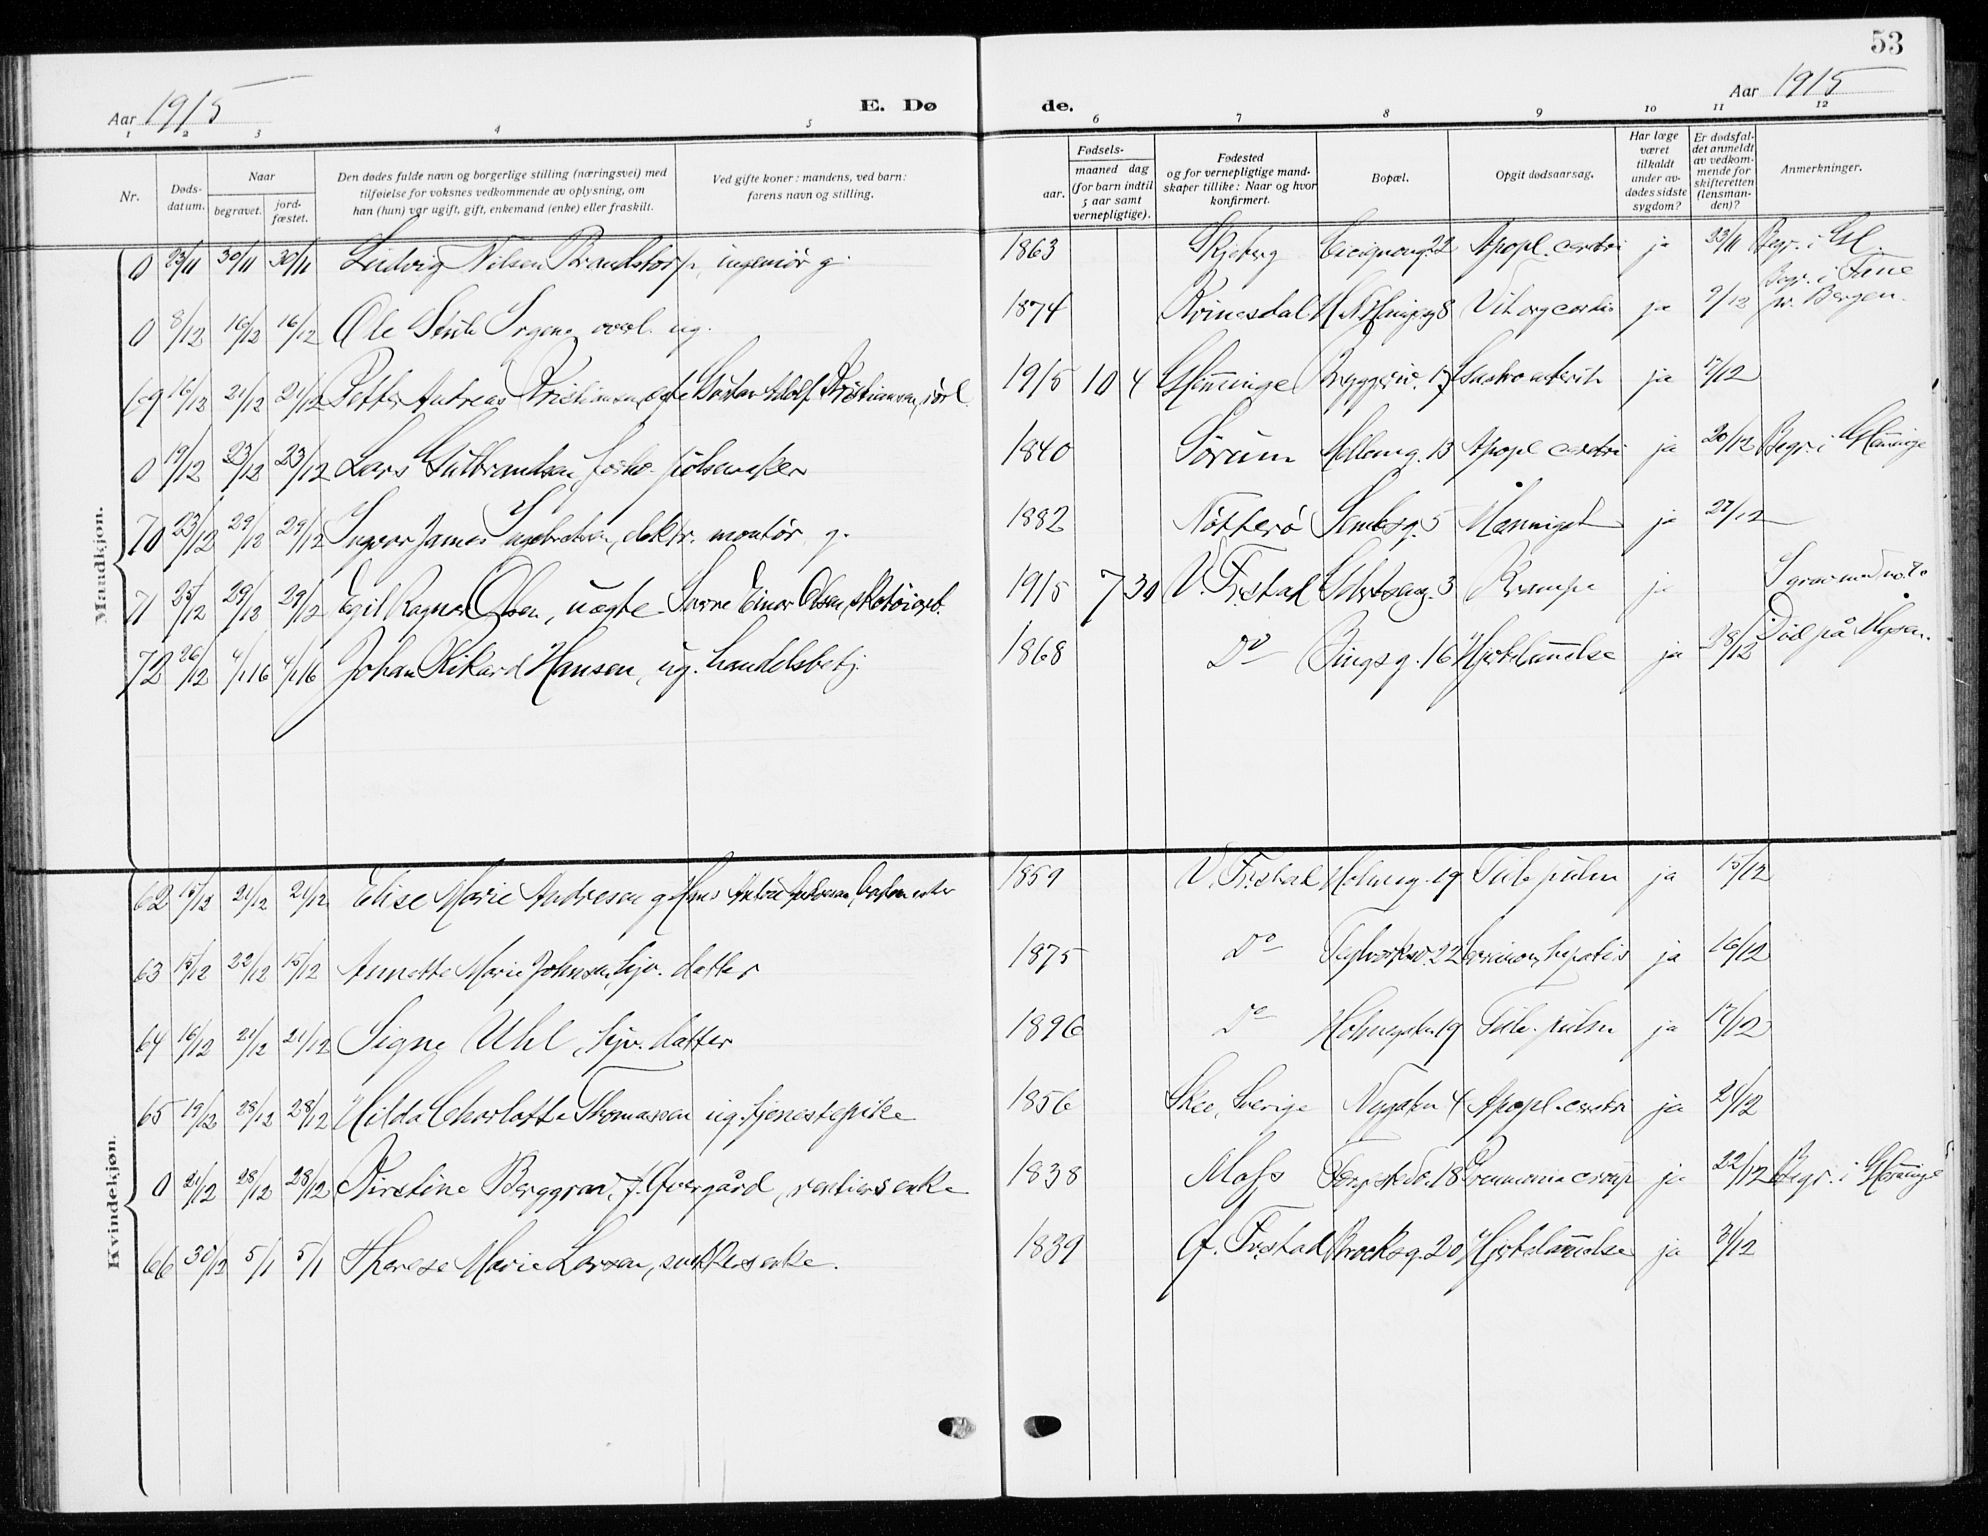 53
Aar 1915
E. Dø de.
Aar 1915
1 2 3 4 5 6 7 8 9 10 11 12
Nr.
Døds-
datum.
Naar
begravet.
jord-
fæstet.
Den dødes fulde navn og borgerlige stilling (næringsvei) med
tilføielse for voksnes vedkommende av oplysning, om
han (hun) var ugift, gift, enkemand (enke) eller fraskilt.
Ved gifte koner: mandens, ved barn:
farens navn og stilling.
Fødsels-
aar.
maaned dag
(for barn indtil
5 aar samt
vernepligtige).
Fødested
og for vernepligtige mand-
skaper tillike: Naar og hvor
konfirmert.
Bopæl.
Opgit dødsaarsag.
Har læge
været
tilkaldt
under av-
dødes sidste
sygdom?
Er dødsfal-
det anmeldt
av vedkom-
mende for
skifteretten
(lensman-
den)?
Anmerkninger.
Mandkjøn.
0 23/11 30/11 30/11 Ludvig Nilsen Brandstorp, ingeniør g. 1863 Skjeberg 22 Apopl. cerebri ja 23/11 Begr. i Gl.
0 8/12 16/12 16/12 Ole 1874 Kvinesdal 8 Vit. org. cordis ja 9/12 Begr. i Fane pr. Bergen.
69 16/12 21/12 21/12 Petter Andreas Kristiansen, egte Gustav Adolf Kristiansen, 1915 10 4 Glemminge Bryggeriv. 17 Gastroenterit ja 17/12
0 19/12 23/12 23/12 Lars Gulbrandsen, forhv. pølsemaker 1840 Sørum Melleng. 13 Apopl. cerebri ja 20/12 Begr. i Glemminge
70 23/12 29/12 29/12 Ingvar James Ingebretsen, elektr. montør g. 1882 Nøtterø 5 Meningit ja 27/12
71 25/12 29/12 29/12 Egil Ragnar Olsen, uegte Einar Olsen, skotøiarb. 1915 7 30 V. Fr.stad 3 Krampe ja I grav med
72 26/12 4/1 16 4/1 16 Johan Rikard Hansen, ug. handelsbetj. 1868 Do Tingsg. 16 Hjertelammelse ja 28/12 Død på Mysen.
Kvindekjøn.
62 15/12 21/12 21/12 Elise Marie Andresen g. Hans Anton Andresen, 1859 V. Fr.stad Holmeg. 19 Tub. pulm ja 15/12
63 15/12 22/12 15/12 Annette Marie Johnsen, hjv. datter 1875 Do Teglverksv. 22 hepatis ja 16/12
64 16/12 21/12 21/12 Signe Uhl, hjv. datter 1896 Do Holmegaten 19 Tub. pulm ja 17/12
65 19/12 28/12 28/12 Hilda Charlotte Thomassen ug. tjenestepike 1856 Skee, Sverige Nygaten 4 Apopl. cerebri ja 21/12
0 21/12 28/12 28/12 Kirstine Berggrav, f. Overgård, rentiers enke 1838 Moss 18 Pneumonia croup ja 22/12 Begr. i Glemminge
66 30/12 5/1 5/1 Therese Marie Larsen, snekkers enke. 1839 G. Fr.stad Brocksg. 20 Hjertelammelse ja 31/12